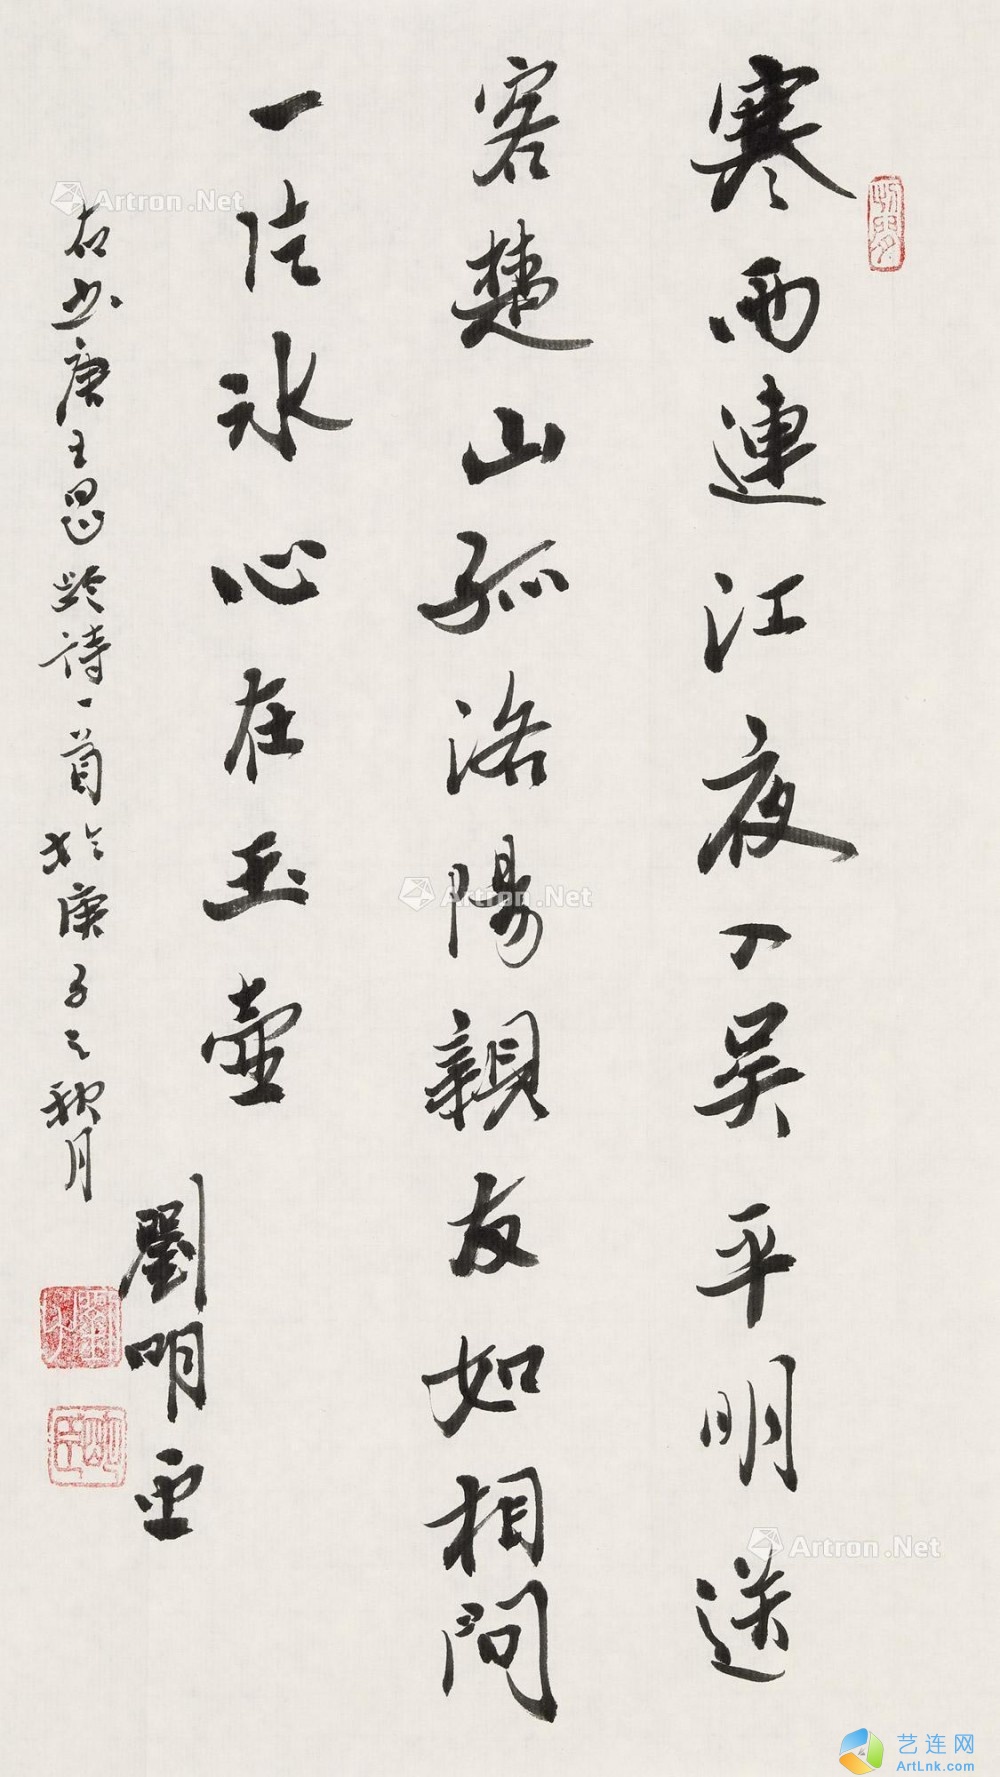 寒雨連江夜入吴平明送
客楚山孤洛陽親友如相問
一片冰心在玉壺
右书唐王昌龄詩一首於庚子之秋月
劉明
Artron.Net
Artron.Net
Artron.Net
艺连网
ArtLnk.com